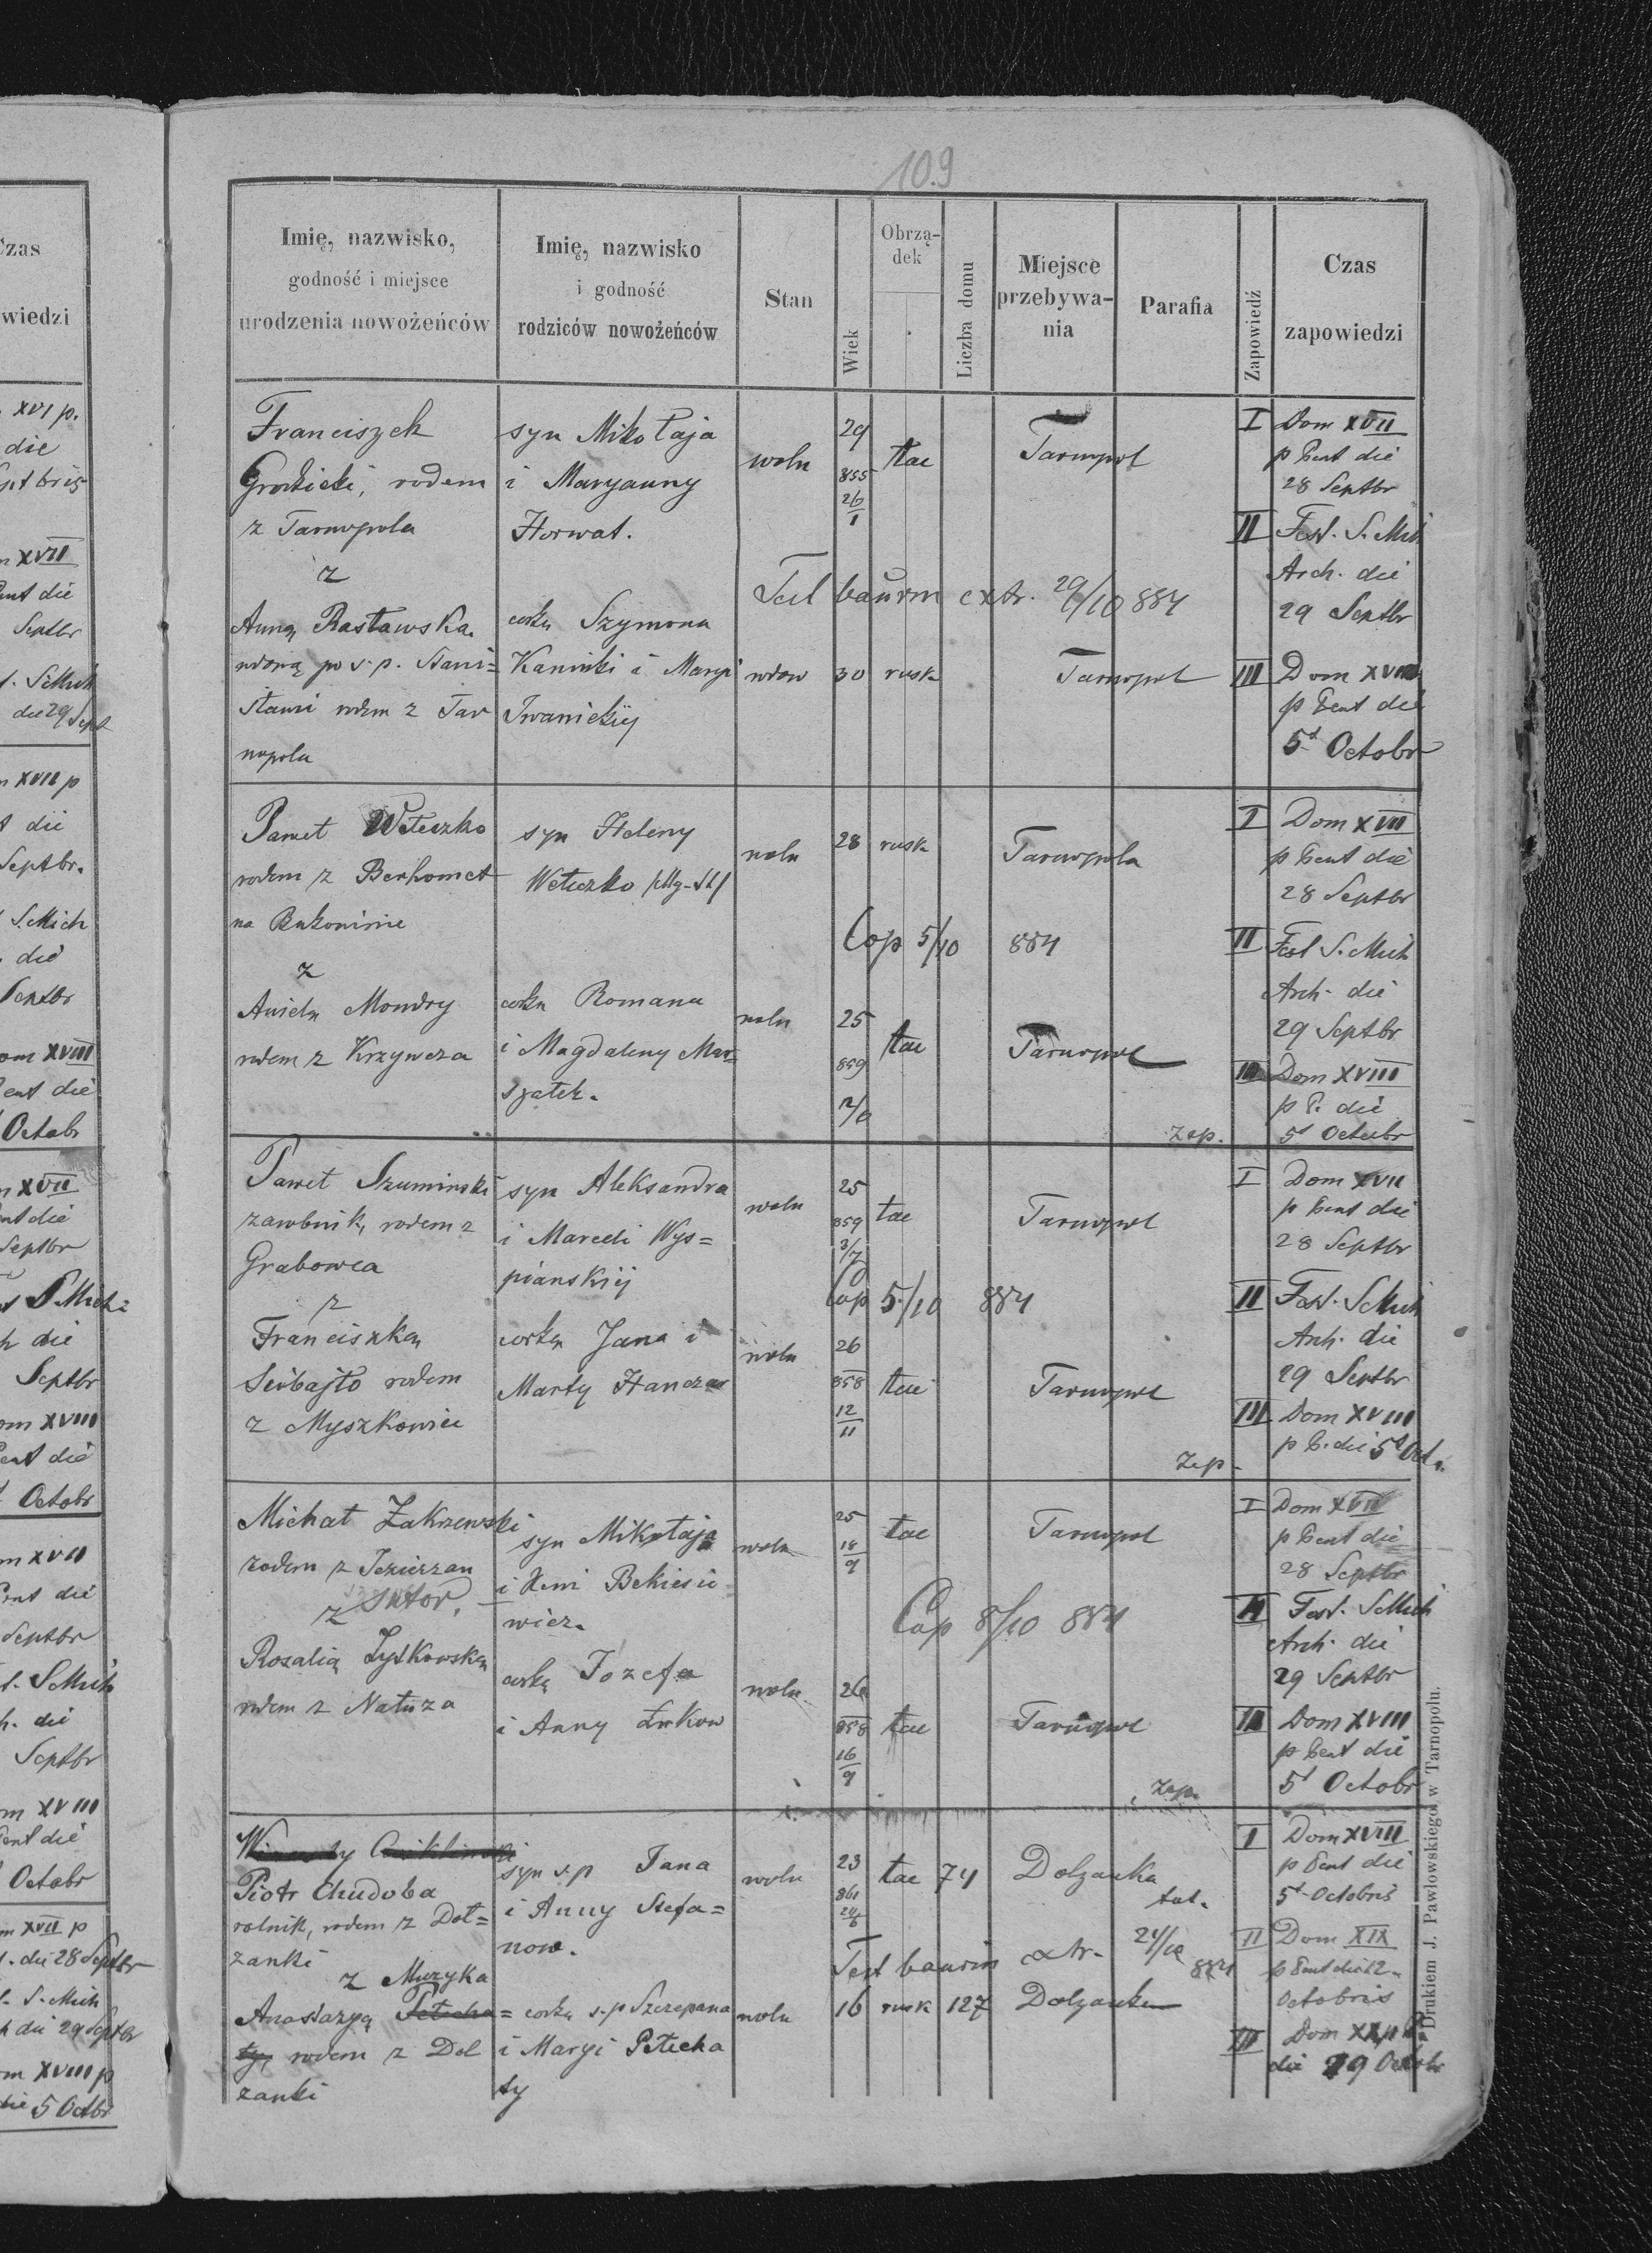 109
Czas
wiedzi
XVI p.
die
XVII
die
Septbr
die 29 Sept
XVII p
die
Septbr.
S. Mich
die
Septbr
Dom XVIII
Pent die
Octobr
XVII
die
Septbr
S. Mich
die
Septbr
Dom XVIII
Pent die
Octobr
XVII
Pent die
Septbr
S Mich
die
Septbr
XVIII
Pent die
Octobr
XVII p
die 28 Septbr
S. Mich
die 29 Septbr
Dom XVIII p
die 5 Octbr
Imię, nazwisko, godność i miejsce urodzenia nowożeńców
Imię, nazwisko i godność rodziców nowożeńców
Stan
Wiek
Obrzą-
dek
Liczba domu
Miejsce
przebywa-
nia
Parafia
Zapowiedź
Czas
zapowiedzi
Franciszek syn Mikołaja woln 29 łac Tarnopol I Dom XVII
Grodzicki, rodem i Maryanny 855 p Pent die
z Tarnopola Horwat. 26/1 28 Septbr
z II Fest. S. Mich
Test bannm extr. 29/10 884 Arch. die
Anną Rasławska córka Szymona 29 Septbr
wdową po ś. p. Stani= Kaminski i Maryi wdow 30 rusk Tarnopol III Dom XVIII
sławi rodem z Tar Iwanickiy p Pent die
nopola 5t Octobr
Paweł Weteczko syn Heleny woln 28 rusk Tarnopola I Dom XVII
rodem z Berhomet Weteczko p Pent die
na Bukowinie 28 Septbr
z Cop 5/10 884 II Fest S. Mich
Aniela Mondry córka Romana woln 25 łac Tarnopol Arch. die
rodem z Krzywcza i Magdaleny Mar= 859 29 Septbr
szałek. III Dom XVIII
p P. die
Zap. 5t Octobr
Paweł Szuminski syn Aleksandra woln 25 łac Tarnopol I Dom XVII
zarobnik, rodem z i Marceli Wys= 859 p Pent die
Grabowca pianskiij 3/7 28 Septbr
z Cop 5/10 884 II Fest. S Mich
Franciszką córką Jana i woln 26 łac Tarnopol Arch. die
Seibajło rodem Marty Hanczar 858 29 Septbr
z Myszkowiec 12/11 III Dom XVIII
Zap. p P. die 5t Oct.
Michał Zakrzewski syn Mikołaja woln 25 łac Tarnopol I Dom XVII
rodem z Jezierzan i Xeni Bekiesie 18/9 p Pent die
sutor. wicz. 28 Septbr
z Cop 8/10 884 II Fest. S Mich
Rozalią Zytkowską córką Jozefa woln 26 łac Tarnopol Arch. die
rodem z Natuza i Anny Łukow 858 29 Septbr
16/9 III Dom XVIII
p Pent die
Zap. 5t Octobr
Piotr Chudoba syn ś.p Jana woln 23 łac 74 Dolzanka I Dom XVIII
rolnik, rodem z Doł= i Anny Stefa= 861 tut. p Pent die
zanki now. 24/6 5t Octobris
z Muzyka Test bannm extr. 21/10 884 II Dom XIX
Anastazyą Petecha= córką ś.p Szczepana woln 16 rusk 127 Dolzanka p Pent die 12
ty, rodem z Doł i Maryi Petecha Octobris
zanki ty III Dom XX p P.
die 19 Octobr
Drukiem J. Pawłowskiego w Tarnopolu.